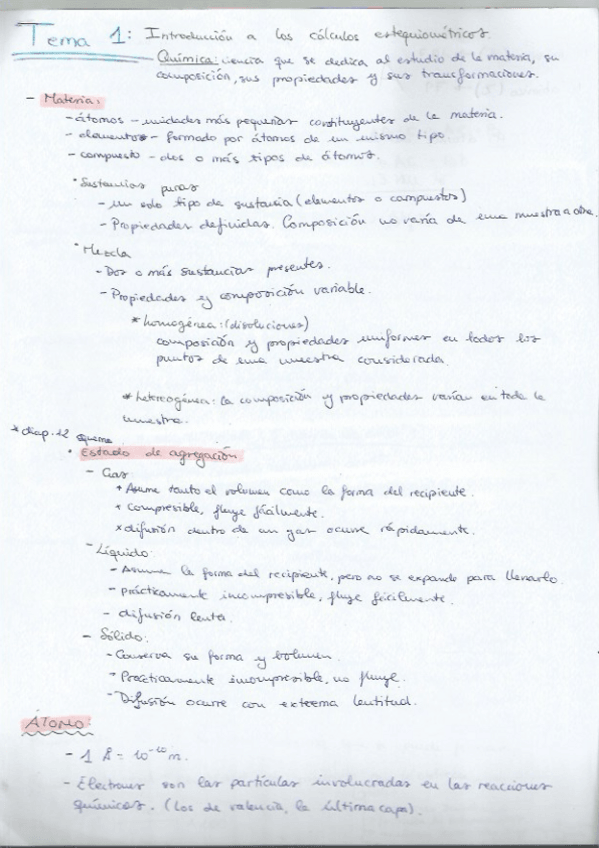 Tema 1: Introducción a los cálculos estequiométricos.
Química: ciencia que se dedica al estudio de la materia, su
composición, sus propiedades y sus transformaciones.
- Materia:
- átomos - unidades más pequeñas constituyentes de la materia.
- elementos - formado por átomos de un mismo tipo
- compuesto - dos o más tipos de átomos.
· Sustancias puras
- un solo tipo de sustancia (elementos o compuestos)
- Propiedades definidas. Composición no varía de una muestra a otra.
· Mezcla
- Dos o más sustancias presentes.
- Propiedades y composición variable.
* homogénea: (disoluciones)
composición y propiedades uniformes en todos los
puntos de una muestra considerada.
* heterogénea: la composición y propiedades varían en toda la
muestra.
* diap. 12 esquema
· Estado de agregación
- Gas
* Asume tanto el volumen como la forma del recipiente.
* compresible, fluye fácilmente.
* difusión dentro de un gas ocurre rápidamente.
- Líquido:
- Asume la forma del recipiente, pero no se expande para llenarlo.
- prácticamente incompresible, fluye fácilmente.
- difusión lenta.
- Sólido:
- Conserva su forma y bolumen.
- Prácticamente incompresible, no fluye.
- Difusión ocurre con extrema lentitud.
ÁTOMO:
- 1 Å = 10⁻¹⁰ m.
- Electrones son las partículas involucradas en las reacciones
químicas. (los de valencia, la última capa).